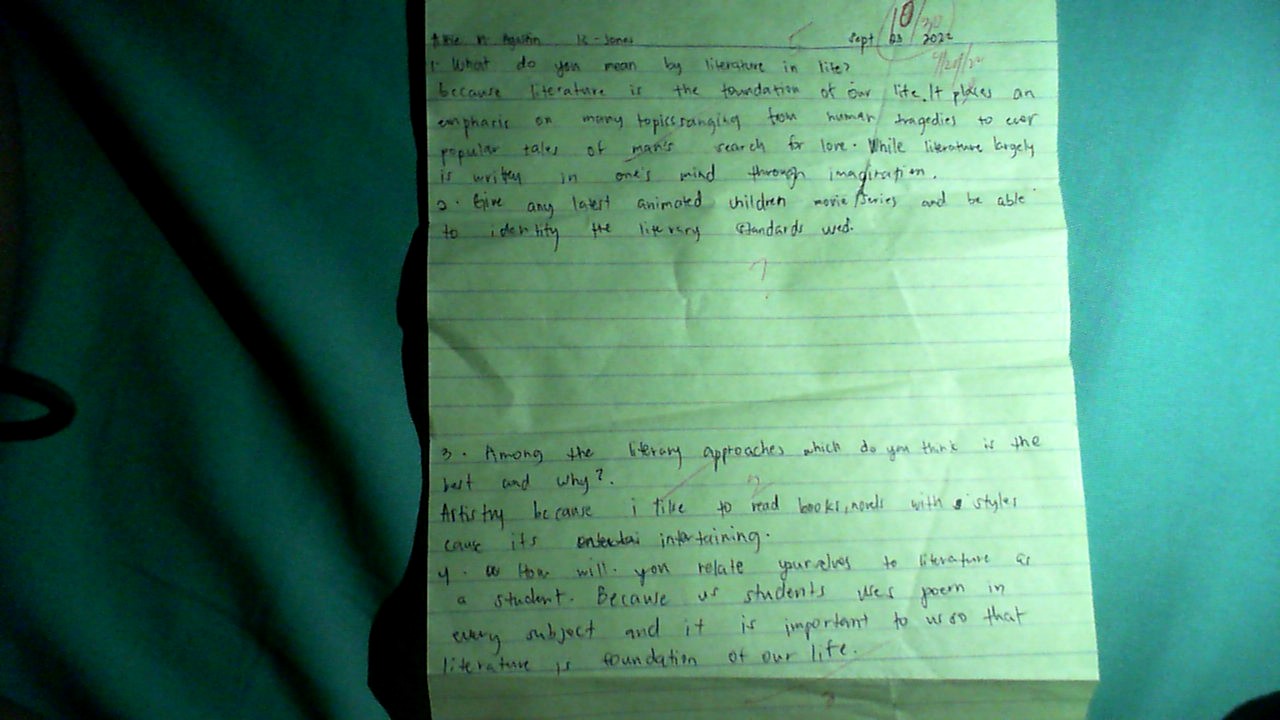 Agustin 12 - Jones Sept 23 2022
10/30
1. What do you mean by literature in life?
because literature is the foundation of our life. It places an
emphasis on many topics ranging from human tragedies to ever
popular tales of man's search for love. While literature largely
is in one's mind through imagination.
2. Give any latest animated children movie/series and be able
to identify the literary standards used.
?
3. Among the literary approaches which do you think is the
best and why?
Artistry because i like to read books, novels with styles
cause its intertaining.
4. How will you relate yourselves to literature as
a student. Because us students uses poem in
every subject and it is important to us so that
literature is foundation of our life.